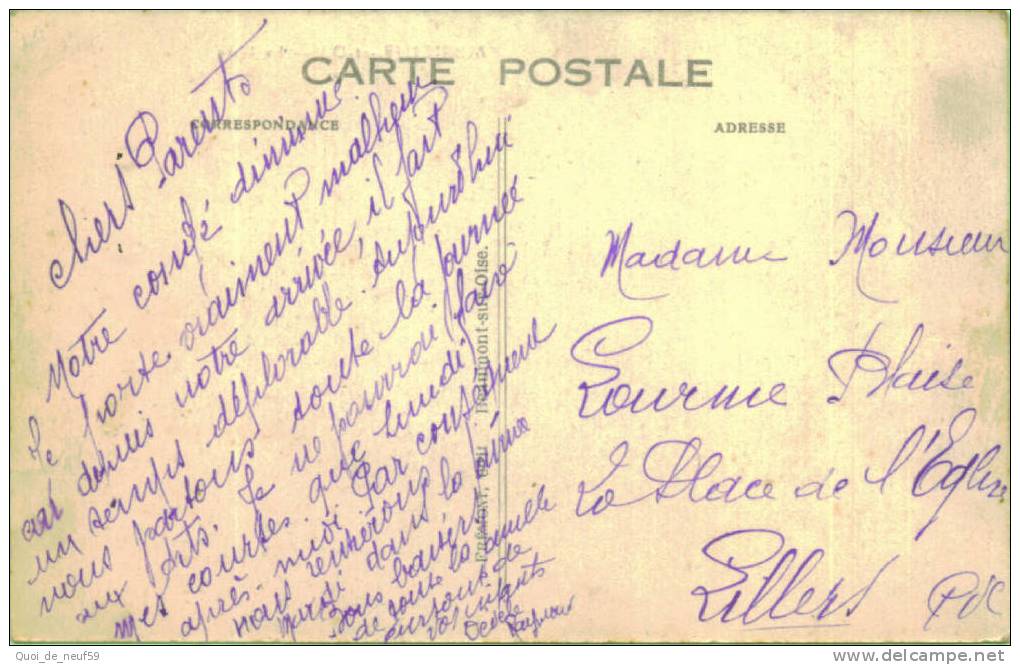 CARTE POSTALE
CORRESPONDANCE
ADRESSE
Chers Parents
Notre congé diminue
Je porte vraiment malheur
car depuis notre arrivée, il fait
un temps déplorable. Aujourd'hui
nous partons toute la journée
aux Je ne pourrai faire
mes courses que lundi
après-midi. Par conséquent
nous rentrerons
mardi dans la
Bons baisers
de toute la famille
de
vos enfants
FRÉMONT, édit. Beaumont-sur-Oise.
Madame Monsieur
Lourme Blaise
La Place de l'Eglise
Lillers PdC
Quoi_de_neuf59
www.delcampe.net